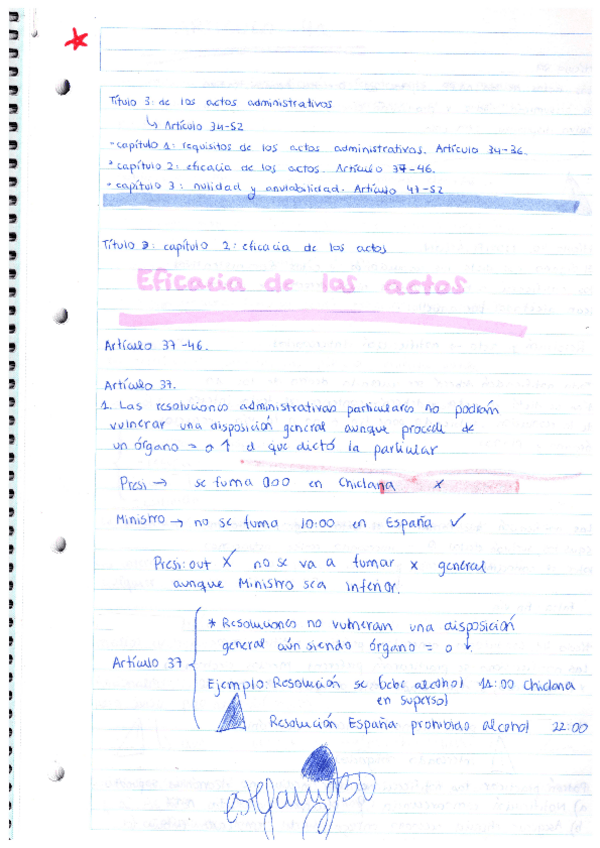 Título 3: de los actos administrativos
↳ Artículo 34-52
• capítulo 1: requisitos de los actos administrativos. Artículo 34-36.
• capítulo 2: eficacia de los actos. Artículo 37-46.
• capítulo 3: nulidad y anulabilidad. Artículo 47-52
Título 3: capítulo 2: eficacia de los actos
Eficacia de las actos
Artículo 37-46.
Artículo 37.
1. Las resoluciones administrativas particulares no podrán
vulnerar una disposición general aunque procede de
un órgano = o ↑ el que dictó la particular
Presi → se fuma 000 en Chiclana x
Ministro → no se fuma 10:00 en España ✓
Presi: out X no se va a fumar x general
aunque Ministro sea inferior.
* Resoluciones no vulneran una disposición
general aún siendo órgano = o ↓.
Artículo 37
Ejemplo: Resolución se bebe alcohol 11:00 Chiclana
en supersol
Resolución España prohibido alcohol 22:00
estefanyg30